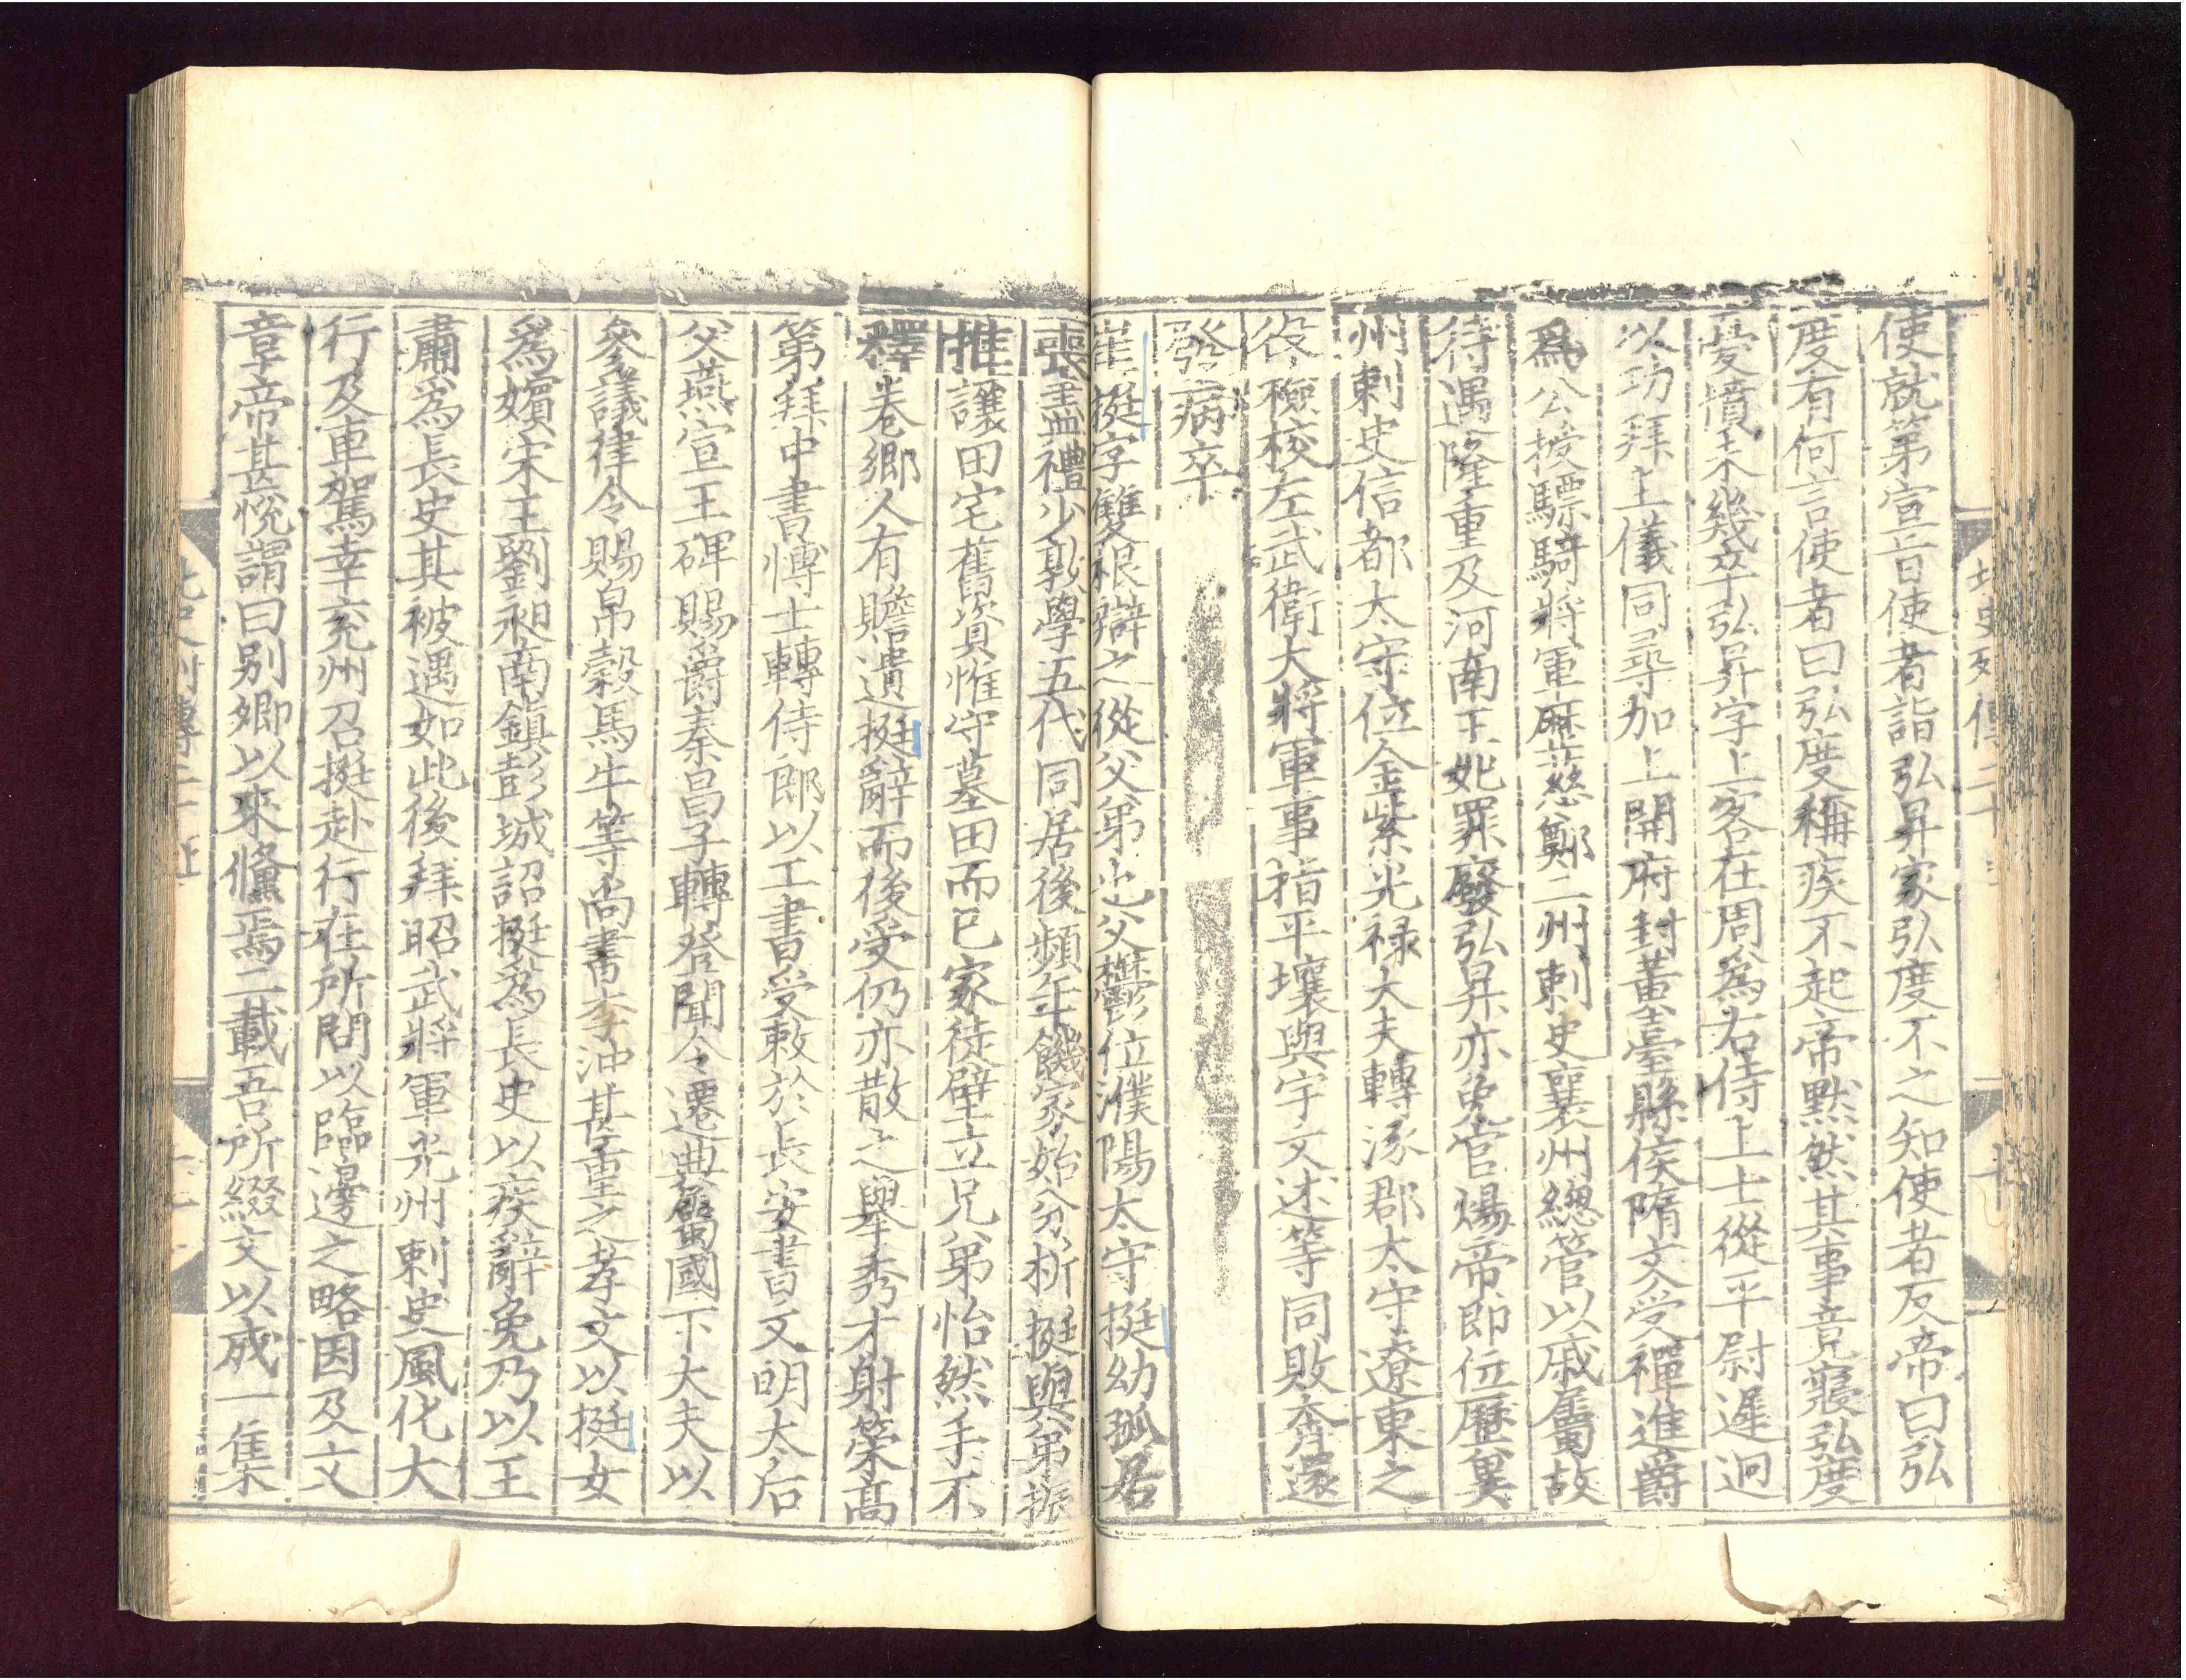 使就第宣旨使者詣弘昇家弘度不之知使者反帝曰弘
度有何言使者曰弘度稱疾不起帝黙然其事竟寢弘度
憂憤未幾卒弘昇字上客在周爲右侍上士從平尉遲迥
以功拜上儀同尋加上開府封黃臺縣侯隋文受禪進爵
爲公授驃騎將軍歷慈鄭二州刺史襄州總管以戚舊故
待遇隆重及河南王妃罪廢弘昇亦免官煬帝即位歷冀
州刺史信都太守位金紫光祿大夫轉涿郡太守遼東之
役檢校左武衛大將軍事指平壤與宇文述等同敗奔還
發病卒
崔挺字雙根辯之從父弟也父鬱位濮陽太守挺幼孤居
喪盡禮少敦學五代同居後頻年饑家始分析挺與弟振
推讓田宅舊資惟守墓田而已家徒壁立兄弟怡然手不
釋卷鄉人有贍遺挺辭而後受仍亦散之舉秀才射策高
第拜中書博士轉侍郎以工書受敕於長安書文明太后
父燕宣王碑賜爵秦昌子轉登聞令遷典屬國下大夫以
參議律令賜帛穀馬牛等尚書李沖甚重之孝文以挺女
爲嬪宋王劉昶南鎮彭城詔挺爲長史以疾辭免乃以王
肅爲長史其被遇如此後拜昭武將軍光州刺史風化大
行及車駕幸兗州召挺赴行在所問以臨邊之略因及文
章帝甚悅謂曰别卿以來儵焉二載吾所綴文以成一集